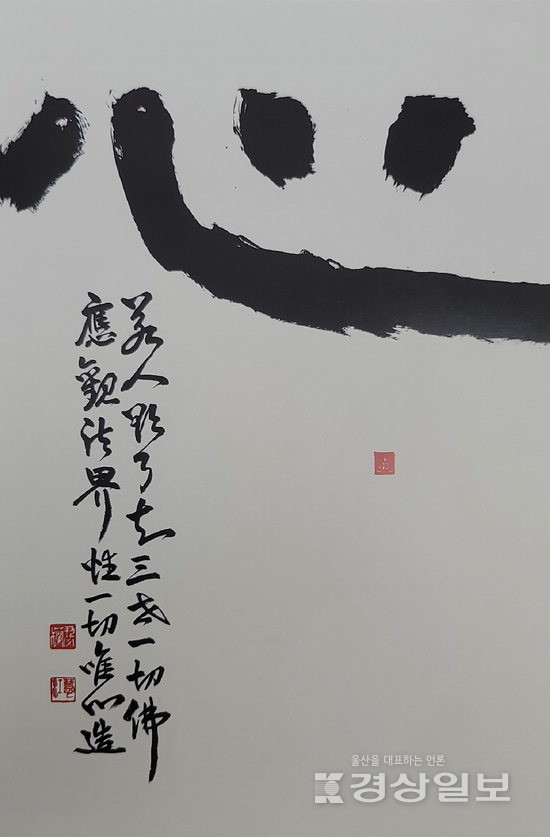 心
若人欲了知三世一切佛
應觀法界性一切唯心造
울산을 대표하는 언론
경상일보